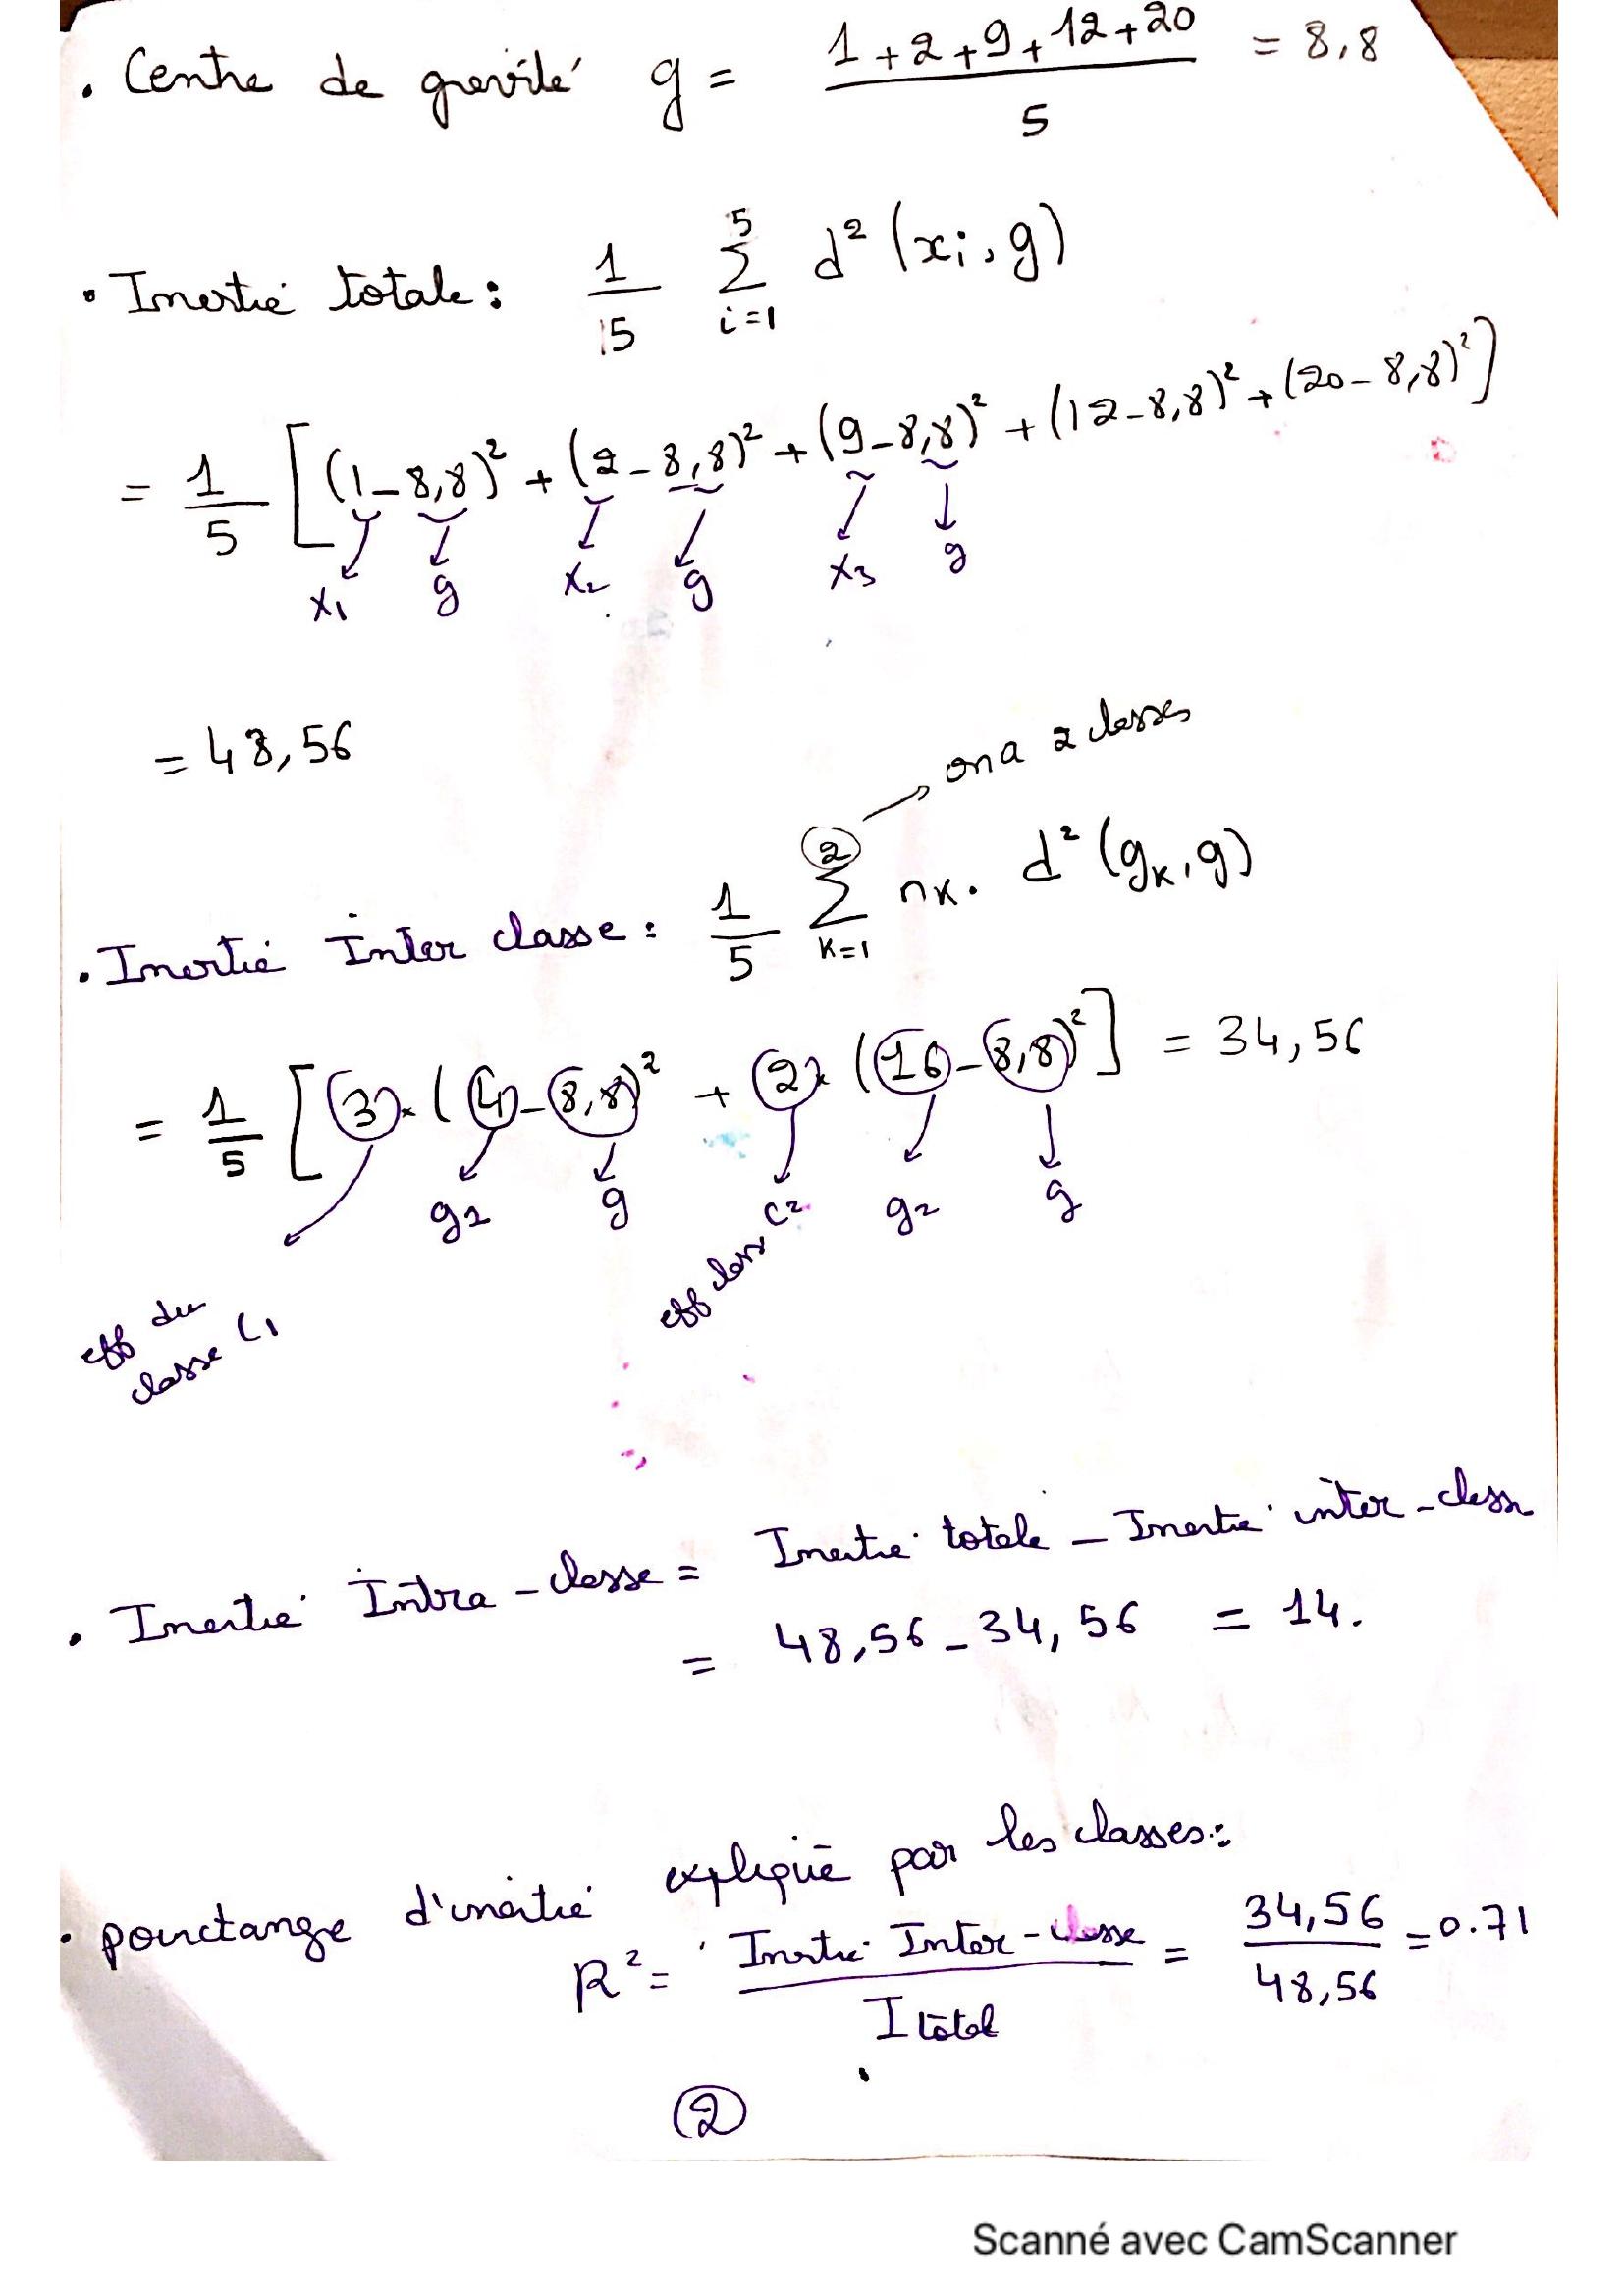 . Centre de gravité g = (1+2+9+12+20)/5 = 8,8
• Inertie totale : 1/5 Σ_{i=1}^{5} d² (xi, g)
= 1/5 [(1-8,8)² + (2-8,8)² + (9-8,8)² + (12-8,8)² + (20-8,8)²]
x1 g x2 g x3 g
= 48,56
on a 2 classes
. Inertie Inter classe : 1/5 Σ_{k=1}^{2} nk. d² (gk, g)
= 1/5 [3 × (4-8,8)² + 2 × (16-8,8)²] = 34,56
g1 g eff class C2 g2 g
eff du classe C1
. Inertie Intra-classe = Inertie totale - Inertie inter-class
= 48,56 - 34,56 = 14.
. pourctange d'inertie expliquē par les classes :
R² = Inertie Inter-classe / I total = 34,56 / 48,56 = 0.71
2
Scanné avec CamScanner